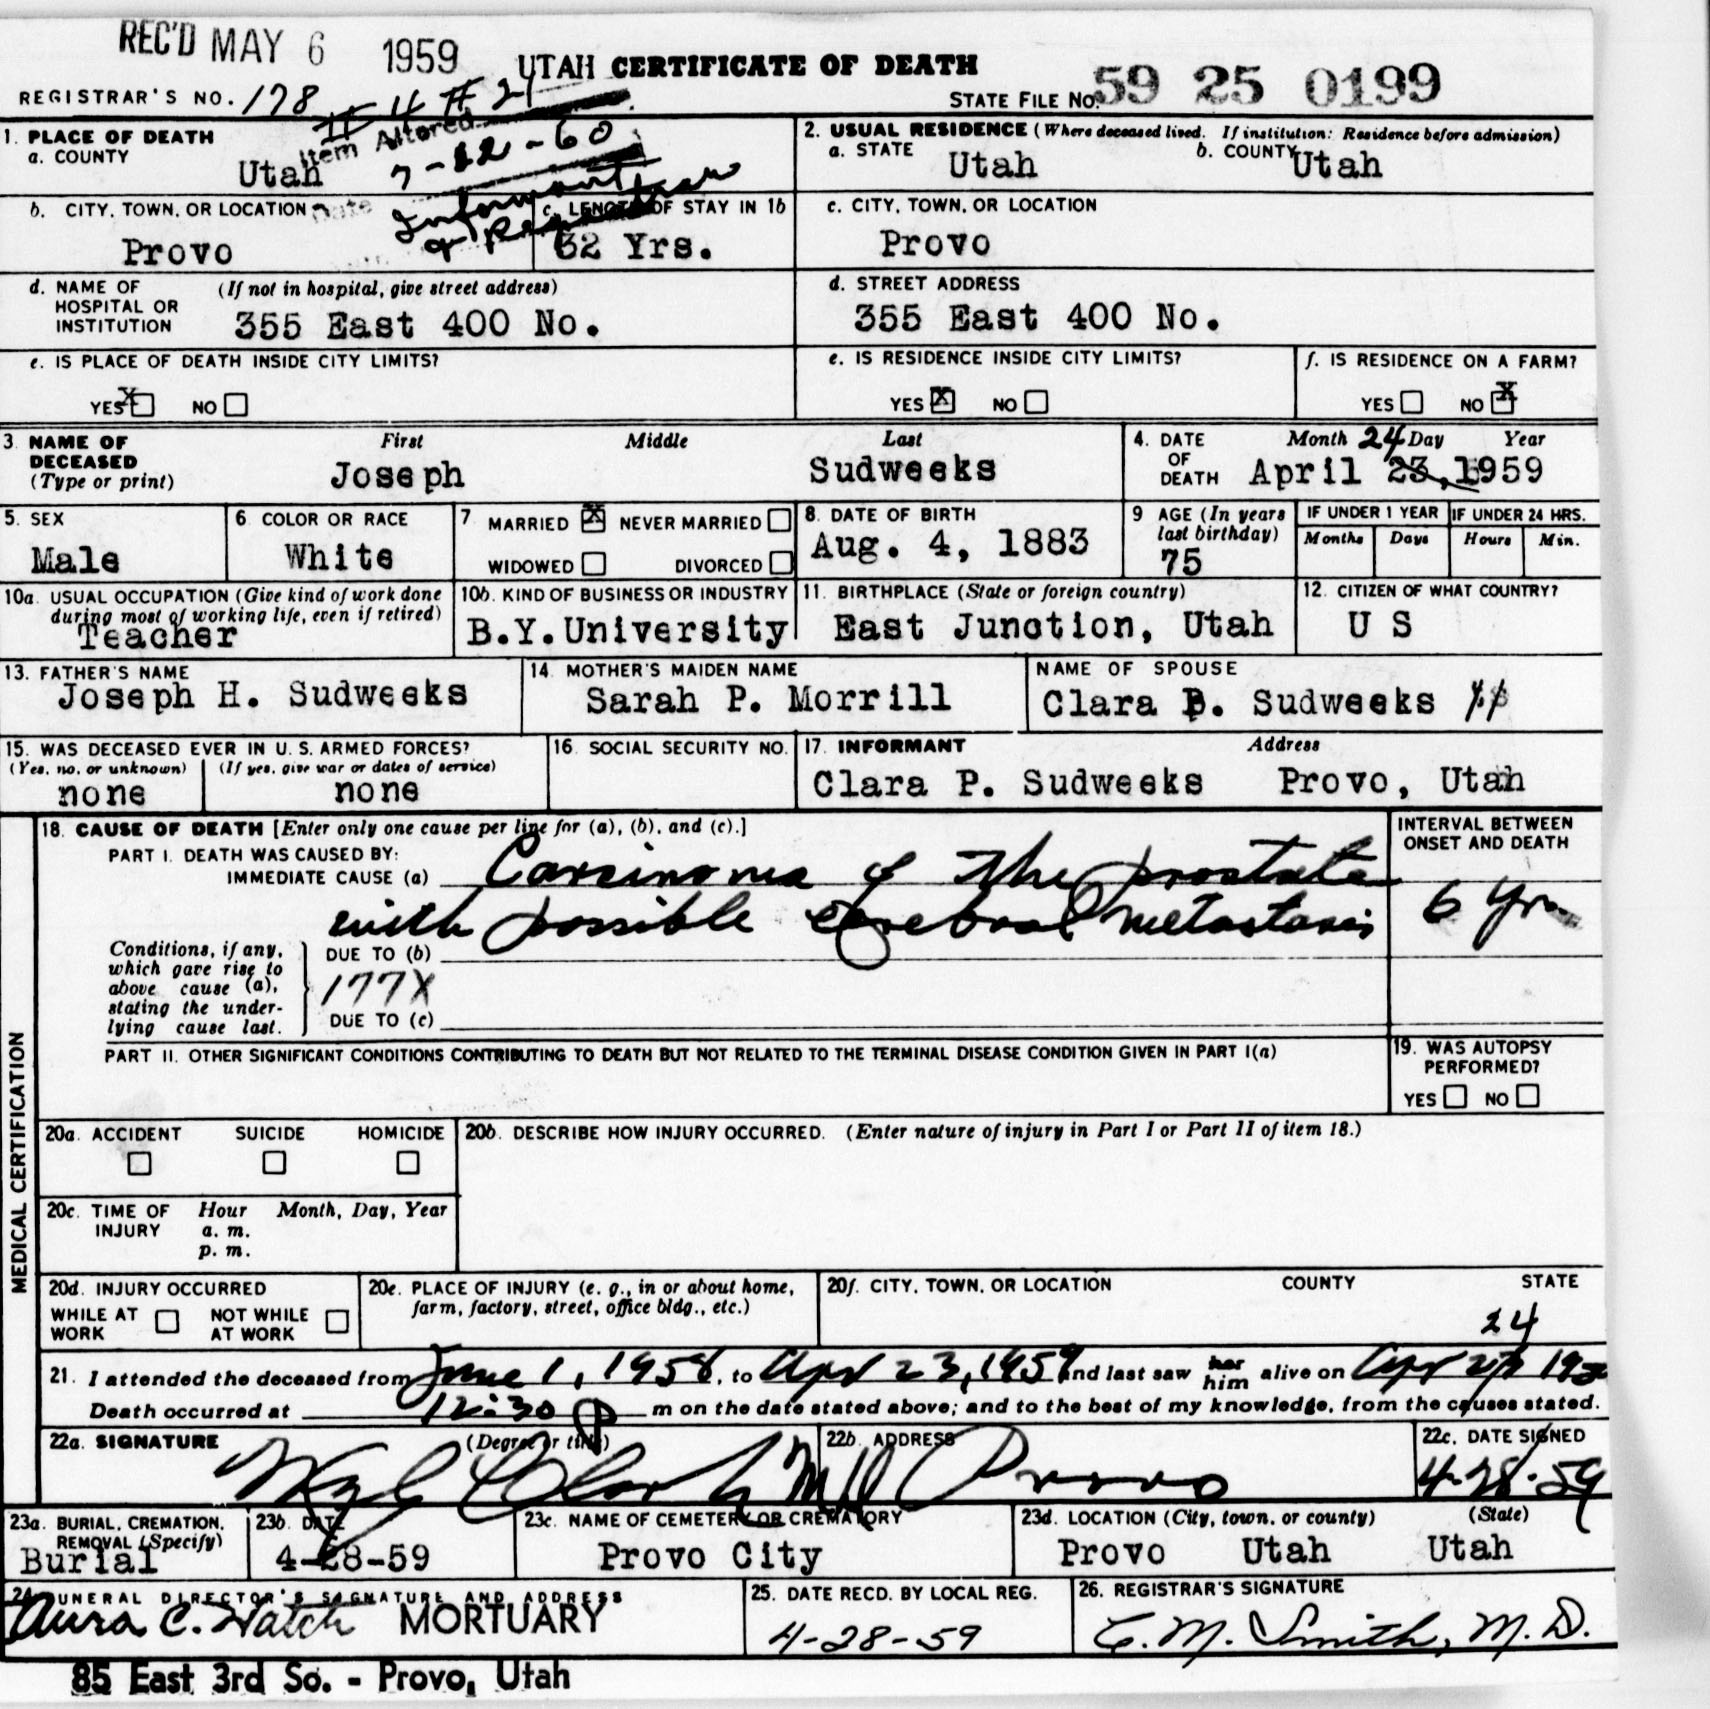 REC'D MAY 6 1959
UTAH CERTIFICATE OF DEATH
REGISTRAR'S NO. 178
STATE FILE NO. 59 25 0199
It 4 # 21
Item Altered
7-22-60
Date
Informant
& Registrar
1. PLACE OF DEATH
a. COUNTY
Utah
2. USUAL RESIDENCE (Where deceased lived. If institution: Residence before admission)
a. STATE Utah b. COUNTY Utah
b. CITY, TOWN, OR LOCATION
Provo
c. LENGTH OF STAY IN 1b
32 Yrs.
c. CITY, TOWN, OR LOCATION
Provo
d. NAME OF HOSPITAL OR INSTITUTION (If not in hospital, give street address)
355 East 400 No.
d. STREET ADDRESS
355 East 400 No.
e. IS PLACE OF DEATH INSIDE CITY LIMITS?
YES X NO
e. IS RESIDENCE INSIDE CITY LIMITS?
YES X NO
f. IS RESIDENCE ON A FARM?
YES NO X
3. NAME OF DECEASED (Type or print)
First Middle Last
Joseph Sudweeks
4. DATE OF DEATH
Month 24 Day Year
April 23, 1959
5. SEX
Male
6. COLOR OR RACE
White
7. MARRIED X NEVER MARRIED
WIDOWED DIVORCED
8. DATE OF BIRTH
Aug. 4, 1883
9 AGE (In years last birthday)
75
IF UNDER 1 YEAR IF UNDER 24 HRS.
Months Days Hours Min.
10a. USUAL OCCUPATION (Give kind of work done during most of working life, even if retired)
Teacher
10b. KIND OF BUSINESS OR INDUSTRY
B.Y.University
11. BIRTHPLACE (State or foreign country)
East Junction, Utah
12. CITIZEN OF WHAT COUNTRY?
U S
13. FATHER'S NAME
Joseph H. Sudweeks
14. MOTHER'S MAIDEN NAME
Sarah P. Morrill
NAME OF SPOUSE
Clara P. Sudweeks
15. WAS DECEASED EVER IN U.S. ARMED FORCES?
(Yes, no, or unknown) (If yes, give war or dates of service)
none none
16. SOCIAL SECURITY NO.
17. INFORMANT Address
Clara P. Sudweeks Provo, Utah
MEDICAL CERTIFICATION
18. CAUSE OF DEATH [Enter only one cause per line for (a), (b), and (c).]
PART I. DEATH WAS CAUSED BY:
IMMEDIATE CAUSE (a) Carcinoma of the prostate
with possible cerebral metastasis
INTERVAL BETWEEN ONSET AND DEATH
6 yrs
Conditions, if any, which gave rise to above cause (a), stating the underlying cause last.
DUE TO (b)
177X
DUE TO (c)
PART II. OTHER SIGNIFICANT CONDITIONS CONTRIBUTING TO DEATH BUT NOT RELATED TO THE TERMINAL DISEASE CONDITION GIVEN IN PART I(a)
19. WAS AUTOPSY PERFORMED?
YES NO
20a. ACCIDENT SUICIDE HOMICIDE
20b. DESCRIBE HOW INJURY OCCURRED. (Enter nature of injury in Part I or Part II of item 18.)
20c. TIME OF INJURY Hour Month, Day, Year
a. m.
p. m.
20d. INJURY OCCURRED
WHILE AT WORK NOT WHILE AT WORK
20e. PLACE OF INJURY (e. g., in or about home, farm, factory, street, office bldg., etc.)
20f. CITY, TOWN, OR LOCATION COUNTY STATE
24
21. I attended the deceased from June 1, 1958, to Apr 23, 1959 and last saw her him alive on Apr
Death occurred at 12:30 P m on the date stated above; and to the best of my knowledge, from the causes stated.
22a. SIGNATURE (Degree or title)
Clark MD
22b. ADDRESS
Provo
22c. DATE SIGNED
4-28-59
23a. BURIAL, CREMATION, REMOVAL (Specify)
Burial
23b. DATE
4-28-59
23c. NAME OF CEMETERY OR CREMATORY
Provo City
23d. LOCATION (City, town, or county) (State)
Provo Utah Utah
24. FUNERAL DIRECTOR'S SIGNATURE AND ADDRESS
Aura C. Hatch MORTUARY
85 East 3rd So. - Provo, Utah
25. DATE RECD. BY LOCAL REG.
4-28-59
26. REGISTRAR'S SIGNATURE
C. M. Smith, M. D.